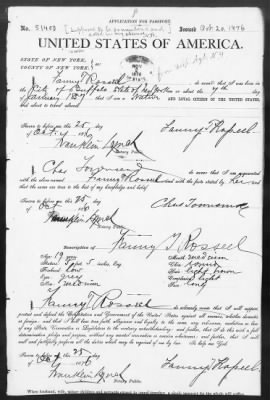 APPLICATION FOR PASSPORT.
No. 51453
Issued Oct 20. 1876
UNITED STATES OF AMERICA.
STATE OF NEW YORK,
COUNTY OF NEW YORK,
I, Fanny T Rosseel do swear that I was born in
the City of Buffalo State of New York on or about the 7th day
of January 1857, that I am a Native AND LOYAL CITIZEN OF THE UNITED STATES,
and about to travel abroad.
Sworn to before me, this 25
day of Oct 1876
Fanny T Rosseel
Franklin Lynch
Notary Public.
I, Chas Townsend do swear that I am acquainted
with the above named Fanny T Rosseel and with the facts stated by her and
that the same are true to the best of my knowledge and belief.
Sworn to before me, this 25
day of Oct 1876
Chas Townsend
Franklin Lynch
Notary Public.
Description of Fanny T Rosseel
Age, 19
Stature, 5 feet 5 inches, Eng.
Forehead, low
Eyes, grey
Nose, medium
Mouth, medium
Chin, round
Hair, light brown
Complexion, light
Face, long
I, Fanny T Rosseel do solemnly swear that I will support,
protect and defend the Constitution and Government of the United States against all enemies, whether domestic
or foreign; and that I will bear true faith, allegiance and loyalty to the same, any ordinance, resolution or law
of any State, Convention or Legislature to the contrary notwithstanding; and further, that I do this with a full
determination, pledge and purpose, without any mental reservation or evasion whatsoever; and further, that I will
well and faithfully perform all the duties which may be required of me by law. So help me God.
Sworn to before me, this 25
day of Oct 1876
Fanny T Rosseel
Franklin Lynch
Notary Public.